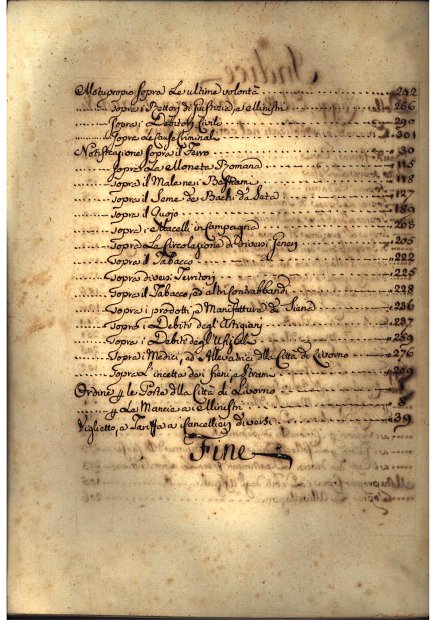 Motupropio sopra Le ultime volontà 242
sopra i Rettori di Giustizia, e Ministri 266
Sopra i Debitori Civili 290
Sopra Le Cause Criminali 301
Notificazione sopra il Ferro 30
sopra La Moneta Romana 115
Sopra il Male nei Bestiami 118
Sopra il Seme de Bachi da Seta 127
Sopra il Quojo 189
Sopra i Macelli in Campagna 203
Sopra La Circolazione di diversi Generi 205
Sopra il Tabacco 222
Sopra diversi Territori 225
Sopra il Tabacco, ed altri Contrabbandi 228
Sopra i prodotti, e Manifatture di Siena 236
Sopra i Debiti degl'Artigiani 237
Sopra i Debiti degl'Ufiziali 259
Sopra i Medici, ed Allevatrici della Città di Livorno 276
Sopra L'incetta dei fieni e Strami 209
Ordine p le Poste della Città di Livorno
p Le Mancie ai Ministri 8
Viglietto, e Tariffa a Cancellieri diversi 39
Fine